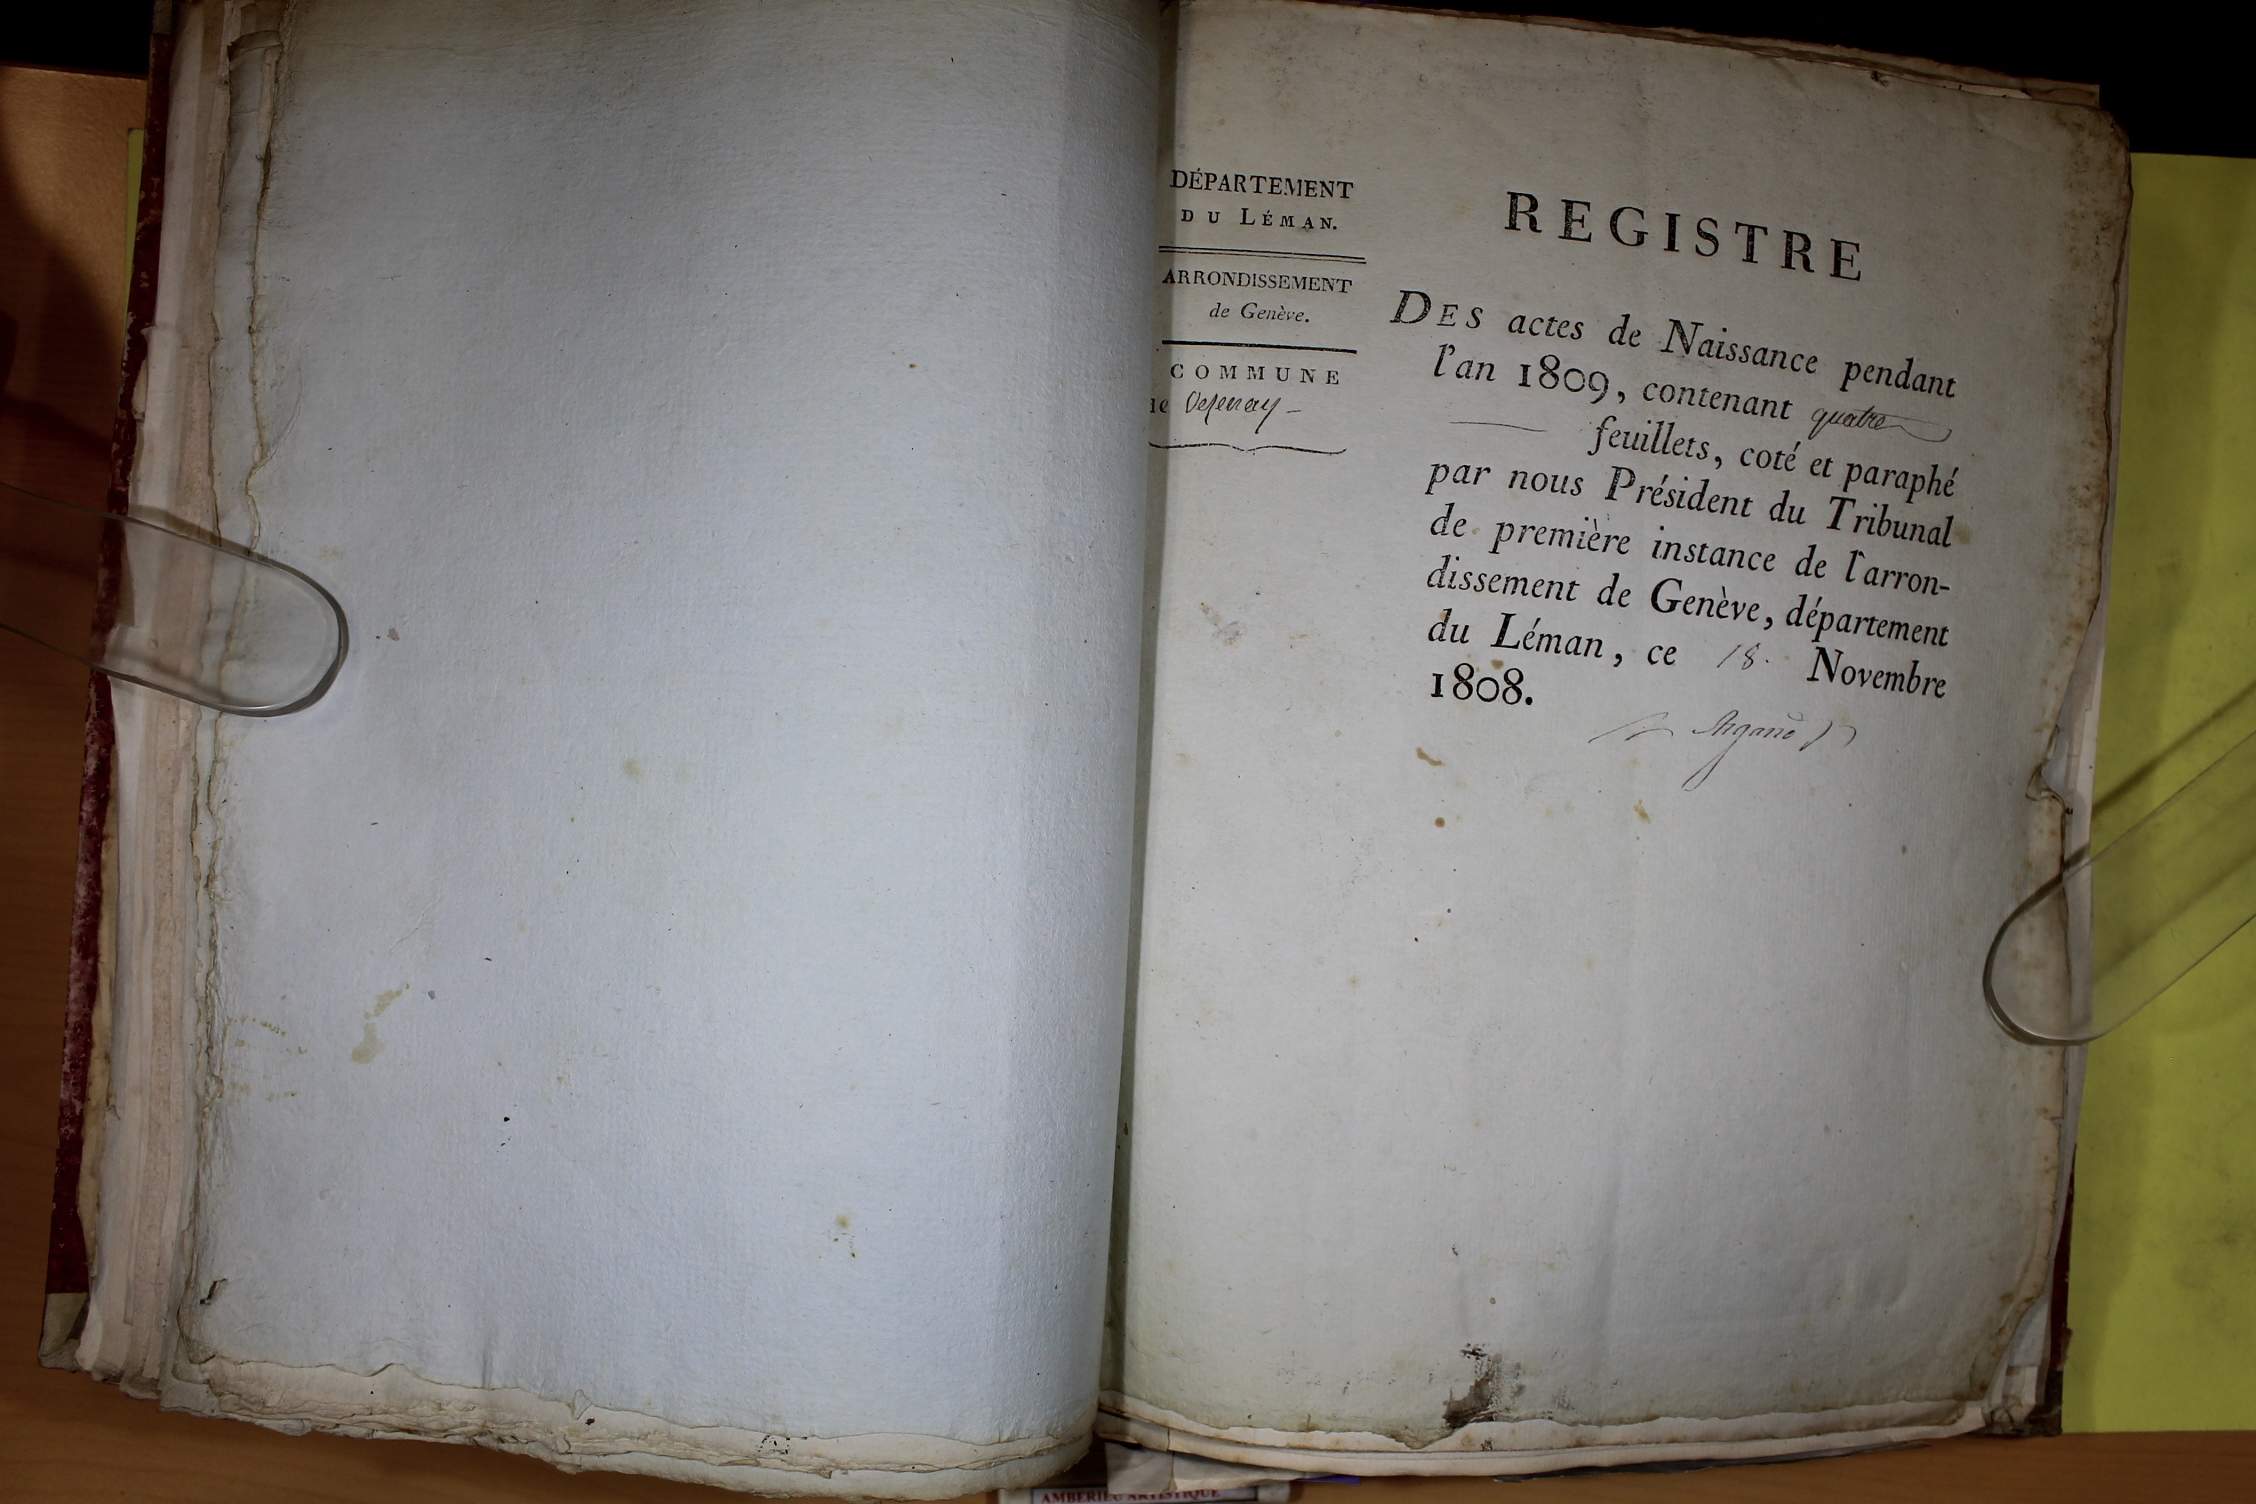 DÉPARTEMENT
DU LÉMAN.
ARRONDISSEMENT
de Genève.
COMMUNE
REGISTRE
DES actes de Naissance pendant
l'an 1809, contenant quatre
feuillets, coté et paraphé
par nous Président du Tribunal
de première instance de l'arron-
dissement de Genève, département
du Léman, ce 18. Novembre
1808.
Argand
AMBERIEU ARTISTIQUE